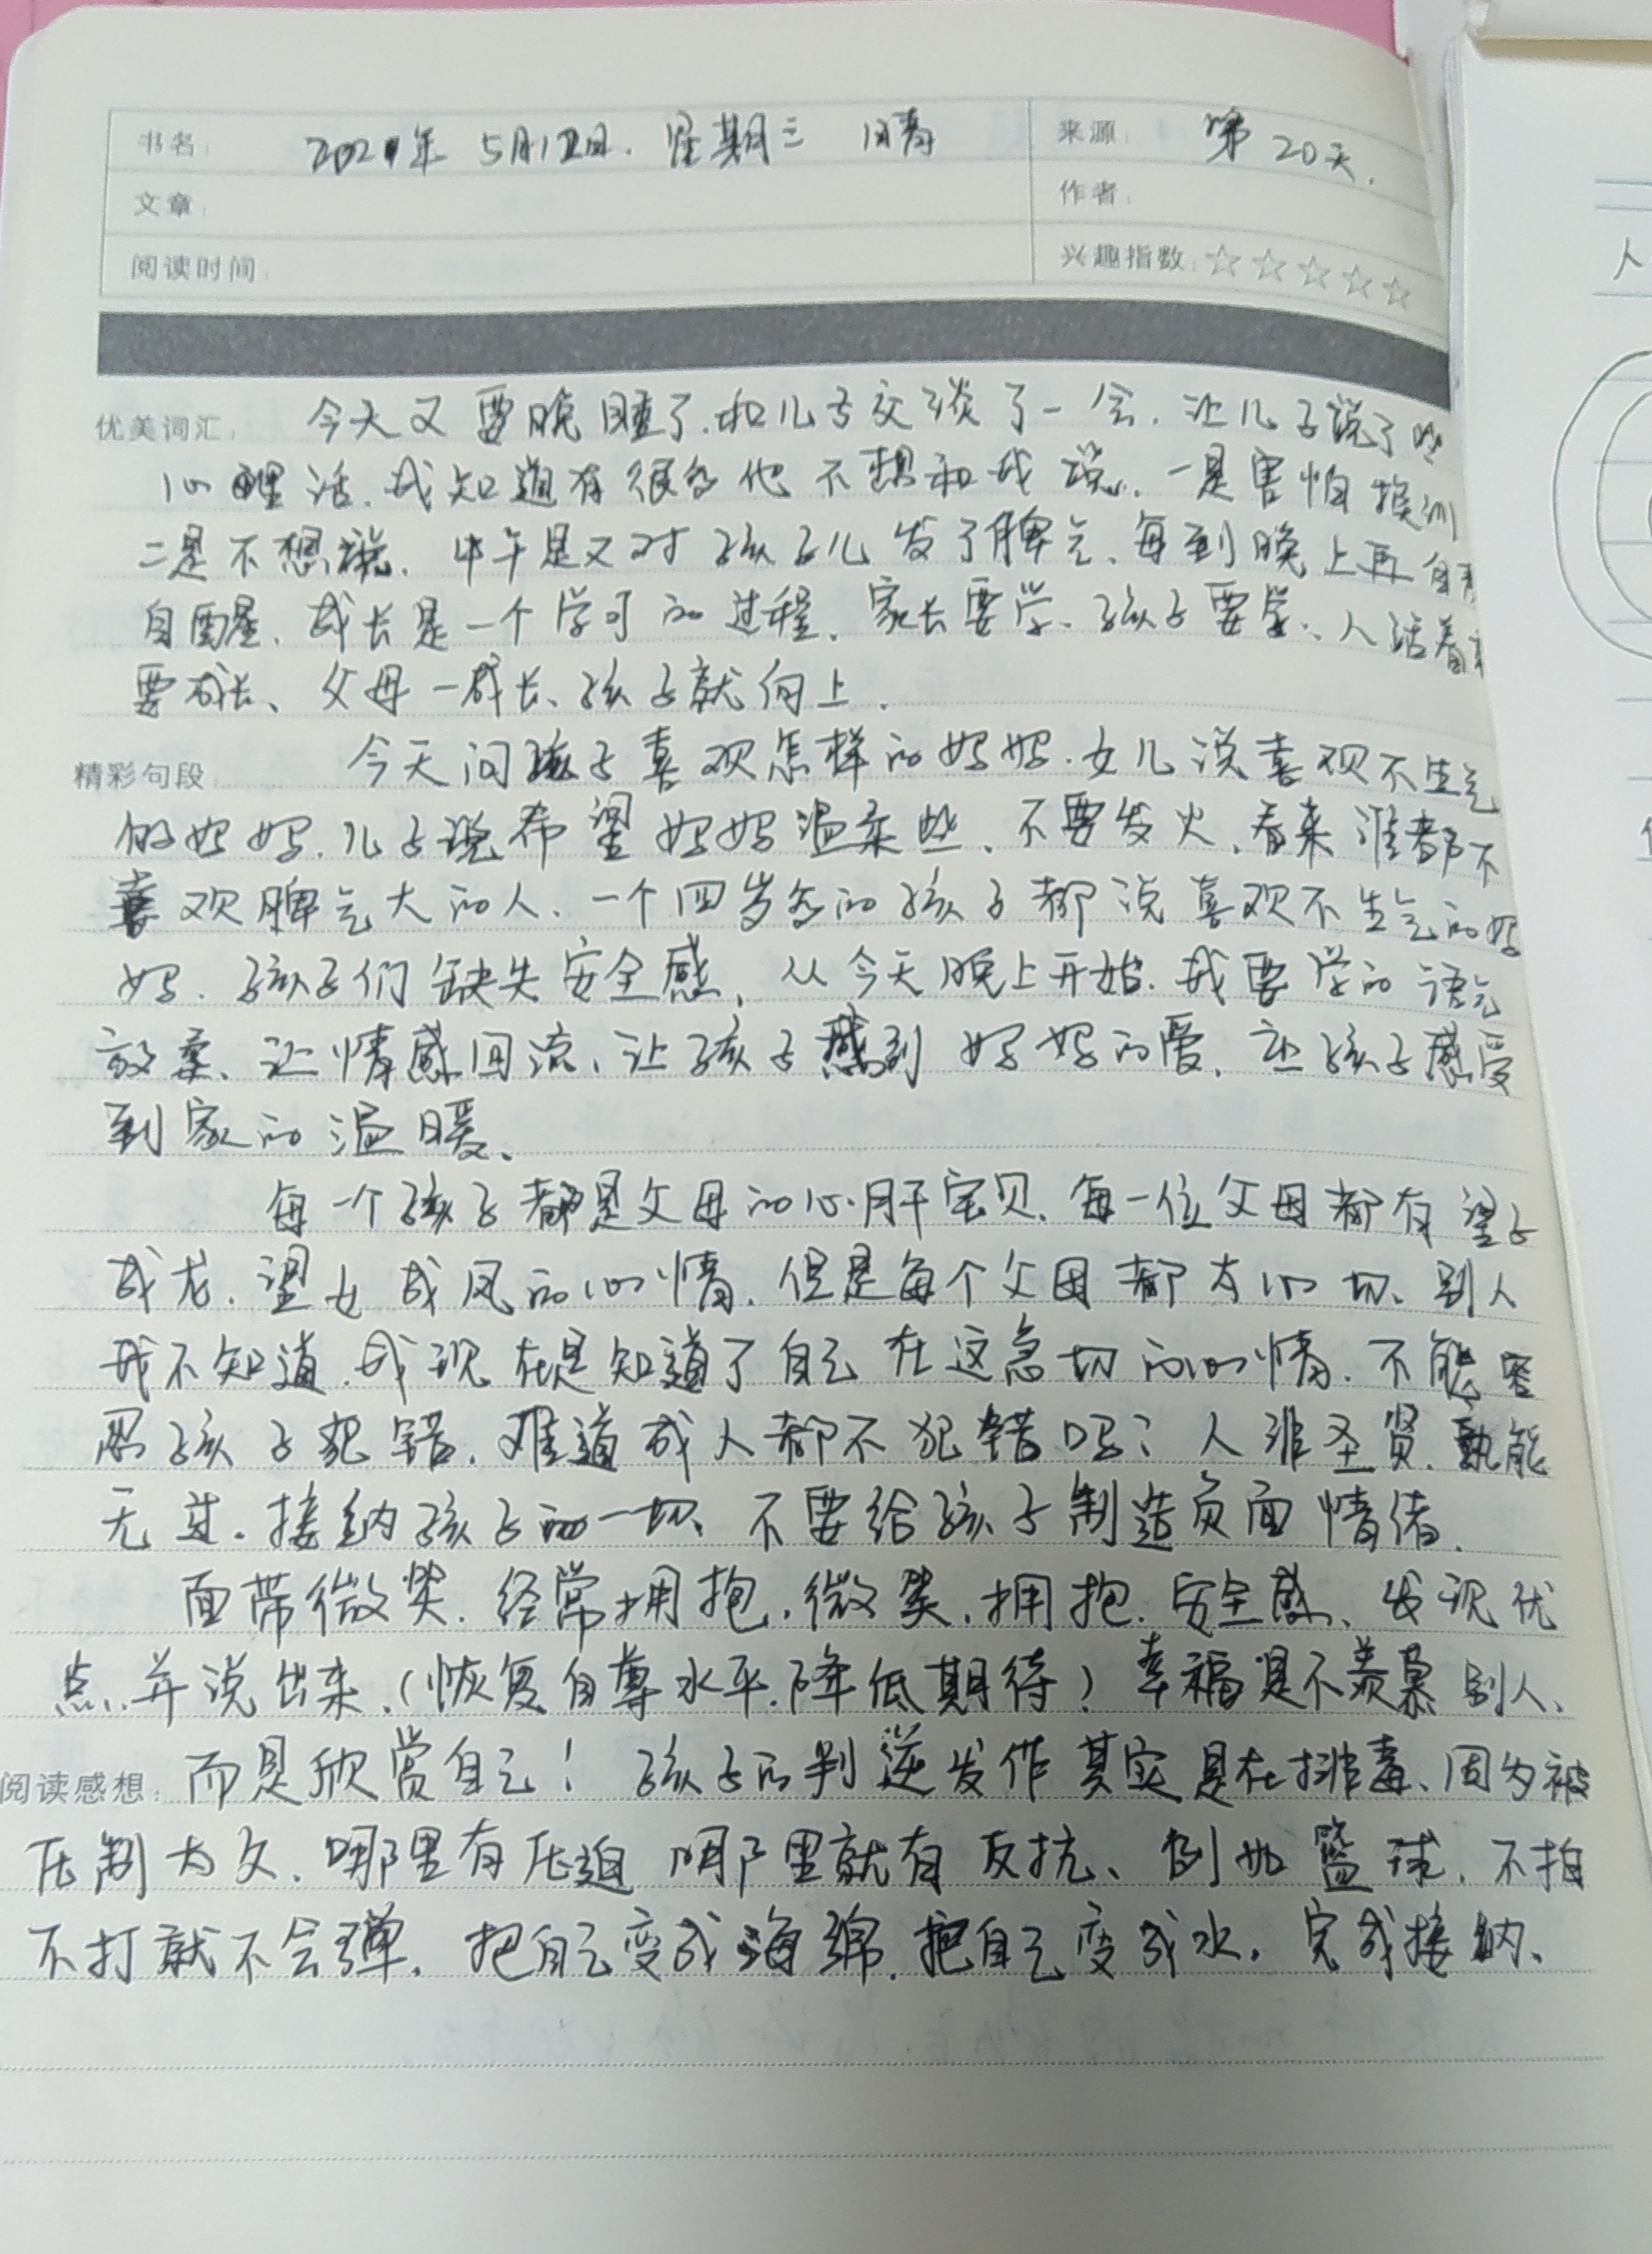 书名： 2021年 5月12日. 星期三 晴 来源： 第20天.
文章： 作者：
阅读时间： 兴趣指数：☆☆☆☆☆
优美词汇： 今天又要晚睡了.和儿子交谈了一会.让儿子说了些
心里话.我知道有很多他不想和我说.一是害怕挨训
二是不想说.中午是又对孩子儿发了脾气、每到晚上再自
自醒.成长是一个学习的过程.家长要学、孩子要学、人活着
要成长、父母一成长、孩子就向上.
精彩句段： 今天问孩子喜欢怎样的妈妈.女儿说喜欢不生气
的妈妈.儿子说希望妈妈温柔些、不要发火.看来谁都不
喜欢脾气大的人.一个四岁多的孩子都说喜欢不生气的妈
妈.孩子们缺失安全感、从今天晚上开始.我要学的语气
放柔、让情感回流、让孩子感到妈妈的爱.让孩子感受
到家的温暖、
每一个孩子都是父母的心肝宝贝.每一位父母都有望子
成龙.望女成凤的心情.但是每个父母都太心切、别人
我不知道.我现在是知道了自己在这急切的心情.不能容
忍孩子犯错.难道成人都不犯错吗?人非圣贤.孰能
无过.接纳孩子的一切、不要给孩子制造负面情绪.
面带微笑.经常拥抱.微笑.拥抱.安全感、发现优
点.并说出来.(恢复自尊水平.降低期待)幸福是不羡慕别人、
阅读感想： 而是欣赏自己! 孩子的判逆发作其实是在排毒、因为被
压制太久.哪里有压迫哪里就有反抗、例如篮球.不拍
不打就不会弹.把自己变成海绵.把自己变成水.完成接纳、
人